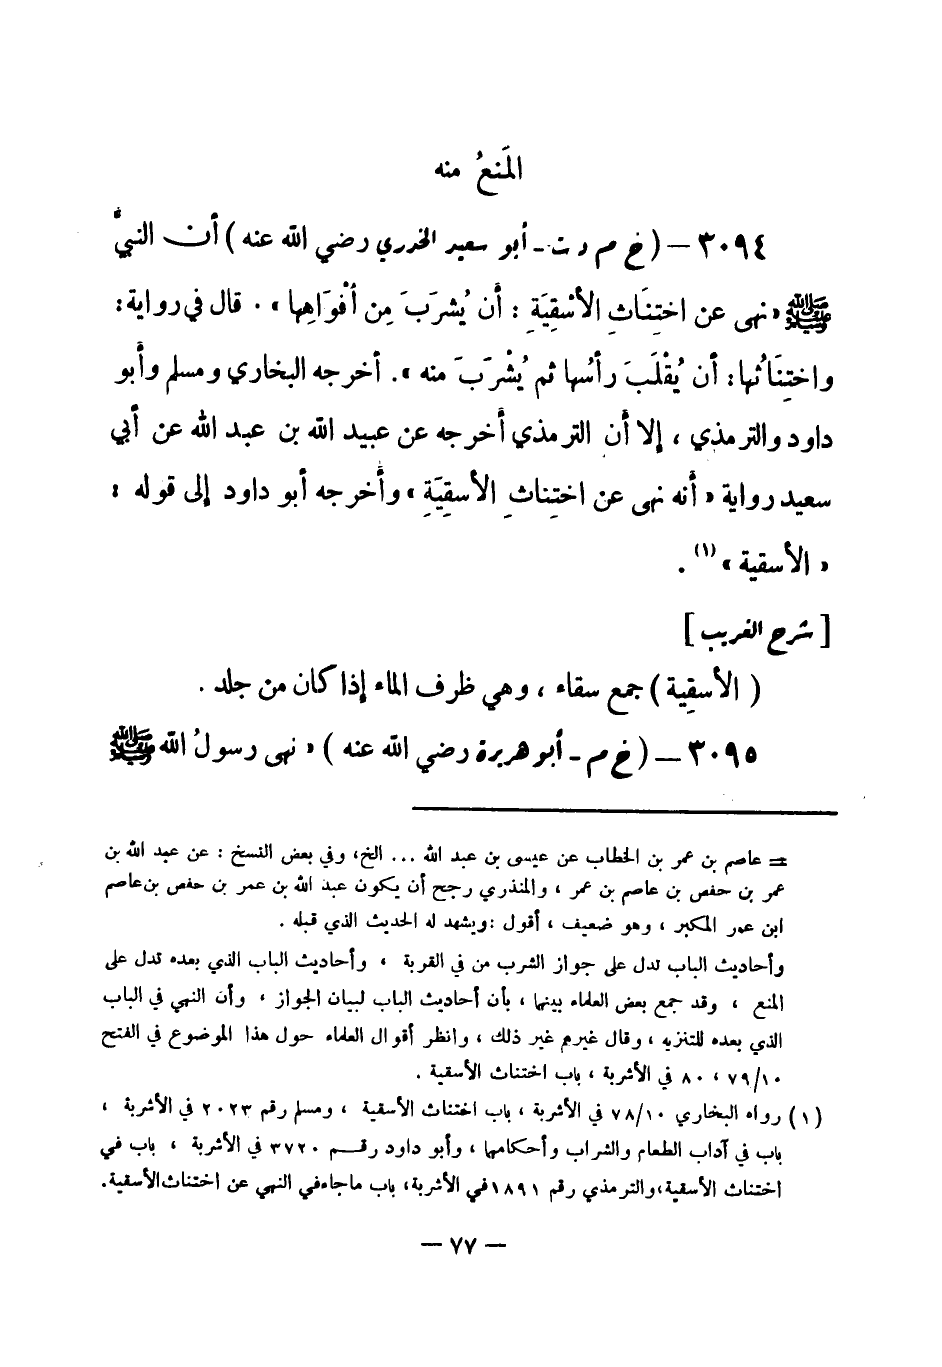 المَنعُ منه
٣٠٩٤ — ( خ م د ت - أبو سعيد الخدري رضي الله عنه ) أن النبيَّ
ﷺ « نهى عن اختِنَاثِ الأسْقِيَةِ : أن يُشرَبَ مِن أفْوَاهِها » . قال في رواية :
واختِنَاثُها : أن يُقْلَبَ رأسُها ثم يُشْرَبَ منه » . أخرجه البخاري ومسلم وأبو
داود والترمذي ، إلا أن الترمذي أخرجه عن عبيد الله بن عبد الله عن أبي
سعيد رواية « أنه نهى عن اختِناثِ الأسقِيَةِ » وأخرجه أبو داود إلى قوله :
« الأسقية » (١) .
[ شرح الغريب ]
( الأسقِية ) جمع سقاء ، وهي ظرف الماء إذا كان من جلد .
٣٠٩٥ — ( خ م - أبو هريرة رضي الله عنه ) « نهى رسولُ الله ﷺ
= عاصم بن عمر بن الخطاب عن عيسى بن عبد الله ... الخ، وفي بعض النسخ : عن عبد الله بن
عمر بن حفص بن عاصم بن عمر ، والمنذري رجح أن يكون عبد الله بن عمر بن حفص بن عاصم
ابن عمر المكبر ، وهو ضعيف ، أقول : ويشهد له الحديث الذي قبله .
وأحاديث الباب تدل على جواز الشرب من في القربة ، وأحاديث الباب الذي بعده تدل على
المنع ، وقد جمع بعض العلماء بينها ، بأن أحاديث الباب لبيان الجواز ، وأن النهي في الباب
الذي بعده للتنزيه ، وقال غيرهم غير ذلك ، وانظر أقوال العلماء حول هذا الموضوع في الفتح
٧٩/١٠ ، ٨٠ في الأشربة ، باب اختناث الأسقية .
(١) رواه البخاري ٧٨/١٠ في الأشربة ، باب اختناث الأسقية ، ومسلم رقم ٢٠٢٣ في الأشربة ،
باب في آداب الطعام والشراب وأحكامها ، وأبو داود رقم ٣٧٢٠ في الأشربة ، باب في
اختناث الأسقية ، والترمذي رقم ١٨٩١ في الأشربة ، باب ماجاء في النهي عن اختناث الأسقية .
— ٧٧ —